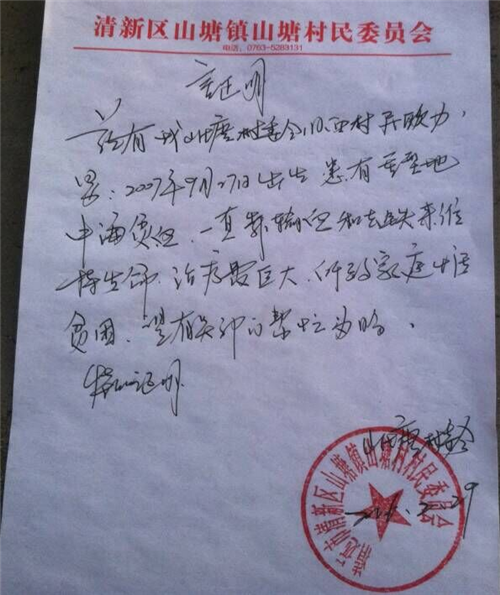 清新区山塘镇山塘村民委员会
电话:0763-5283131
证明
兹有我山塘村委会 村 欧力
:2007年9月27日出生 患有重型地
中海贫血,一直靠输血和去铁来维
持生命,治疗费巨大,所致家庭
贫困,望有关部门帮忙为盼,
特此证明
山塘村委会
29
清远市清新区山塘镇山塘村村民委员会